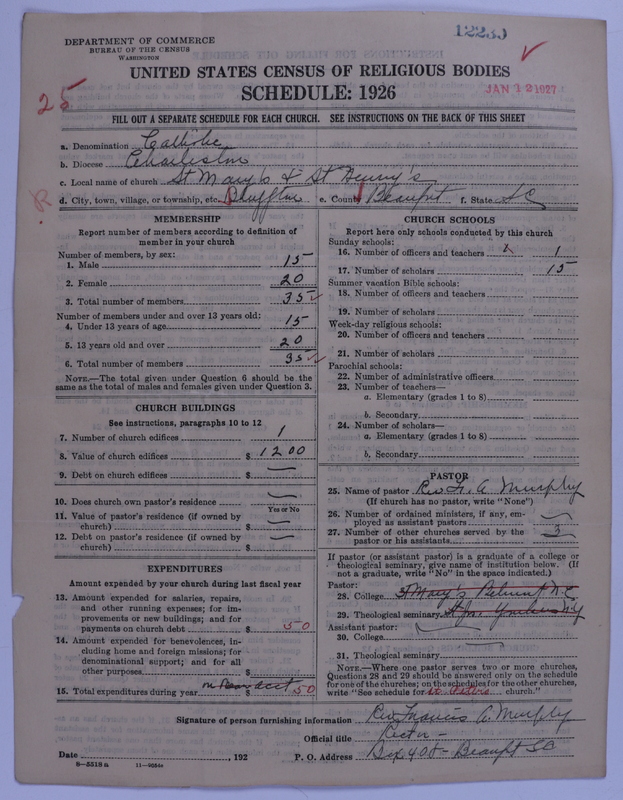 12239
DEPARTMENT OF COMMERCE
BUREAU OF THE CENSUS
WASHINGTON
UNITED STATES CENSUS OF RELIGIOUS BODIES
SCHEDULE: 1926
JAN 12 1927
25
FILL OUT A SEPARATE SCHEDULE FOR EACH CHURCH. SEE INSTRUCTIONS ON THE BACK OF THIS SHEET
a. Denomination Catholic
b. Diocese Charleston
c. Local name of church St Mary's & St Henry's
R
d. City, town, village, or township, etc. Bluffton e. County Beaufort f. State SC
MEMBERSHIP
Report number of members according to definition of
member in your church
Number of members, by sex:
1. Male 15
2. Female 20
3. Total number of members 35
Number of members under and over 13 years old:
4. Under 13 years of age 15
5. 13 years old and over 20
6. Total number of members 35
NOTE.—The total given under Question 6 should be the
same as the total of males and females given under Question 3.
CHURCH BUILDINGS
See instructions, paragraphs 10 to 12
7. Number of church edifices 1
8. Value of church edifices $ 1200
9. Debt on church edifices $ —
10. Does church own pastor's residence —
Yes or No
11. Value of pastor's residence (if owned by
church) $ —
12. Debt on pastor's residence (if owned by
church) $ —
EXPENDITURES
Amount expended by your church during last fiscal year
13. Amount expended for salaries, repairs,
and other running expenses; for im-
provements or new buildings; and for
payments on church debt $ 50
14. Amount expended for benevolences, in-
cluding home and foreign missions; for
denominational support; and for all
other purposes $
15. Total expenditures during year acct $ 50
CHURCH SCHOOLS
Report here only schools conducted by this church
Sunday schools:
16. Number of officers and teachers 1
17. Number of scholars 15
Summer vacation Bible schools:
18. Number of officers and teachers
19. Number of scholars
Week-day religious schools:
20. Number of officers and teachers
21. Number of scholars
Parochial schools:
22. Number of administrative officers
23. Number of teachers—
a. Elementary (grades 1 to 8)
b. Secondary
24. Number of scholars—
a. Elementary (grades 1 to 8)
b. Secondary
PASTOR
25. Name of pastor Rev F. A Murphy
(If church has no pastor, write "None")
26. Number of ordained ministers, if any, em-
ployed as assistant pastors —
27. Number of other churches served by the
pastor or his assistants 3
If pastor (or assistant pastor) is a graduate of a college or
theological seminary, give name of institution below. (If
not a graduate, write "No" in the space indicated.)
Pastor:
28. College St Mary's Belmont N.C
29. Theological seminary St Jos. Yonkers N.Y
Assistant pastor:
30. College
31. Theological seminary
NOTE.—Where one pastor serves two or more churches,
Questions 28 and 29 should be answered only on the schedule
for one of the churches; on the schedules for the other churches,
write "See schedule for St Peters church."
Signature of person furnishing information Rev Francis A. Murphy
Official title Rector —
Date , 192 P. O. Address Box 408 — Beaufort SC
8—5518 a